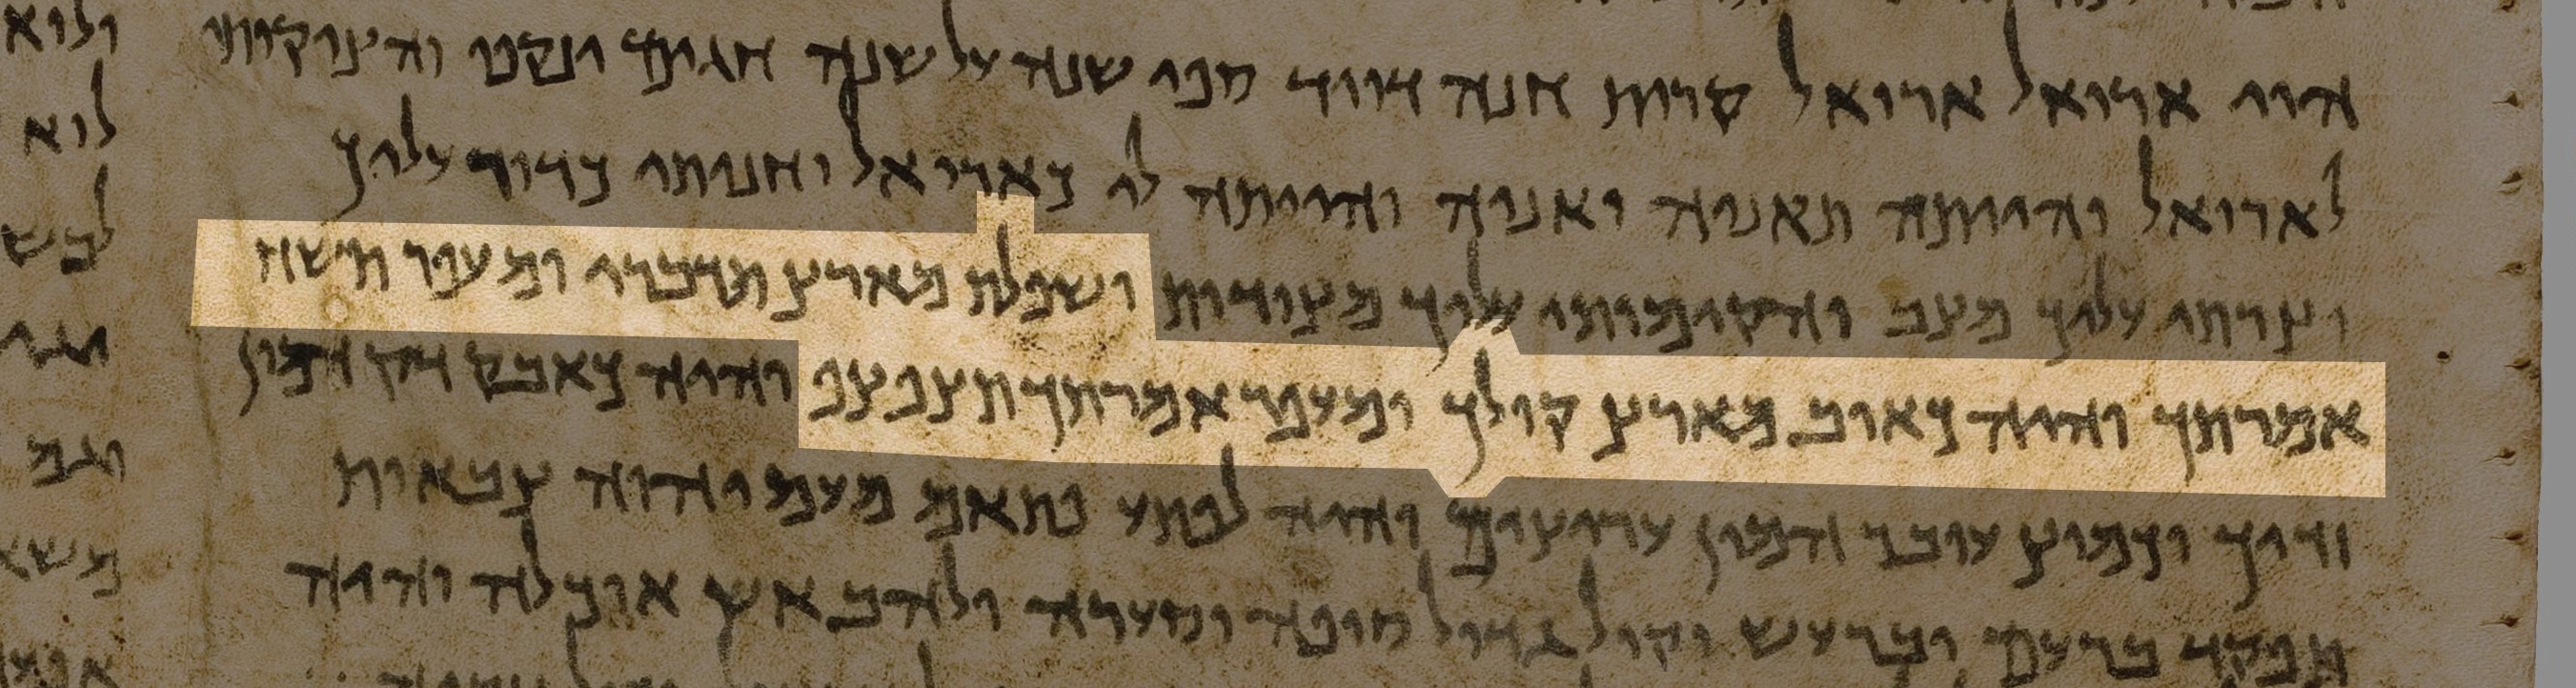 הוי ארואל ארואל קרית חנה דויד ספי שנה על שנה חגים ינקפו והציקותי
לארואל והייתה תאניה ואניה והייתה לי כארואל וחניתי כדור עליך
וצרתי עליך מצב והקימותי עליך מצודות ושפלת מארץ תדברי ומעפר תשח
אמרתך והיה כאוב מארץ קולך ומעפר אמרתך תצפצף והיה כאבק דק המון
זדיך וכמוץ עובר המון עריצים והיה לפתע פתאם מעם יהוה צבאות
תפקד ברעם וברעש וקול גדול סופה וסערה ולהב אש אוכלה והיה
ולוא
לוא
וגם